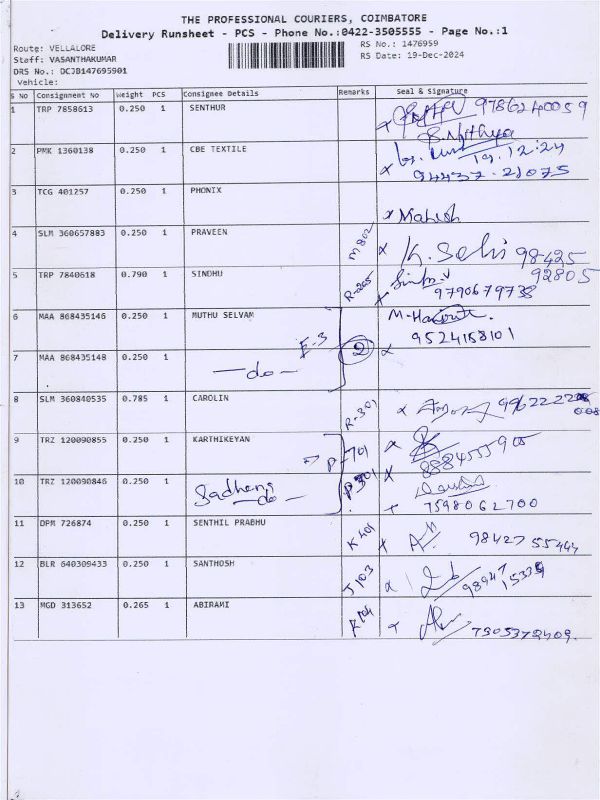 THE PROFESSIONAL COURIERS, COIMBATORE
Delivery Runsheet - PCS - Phone No.:0422-3505555 - Page No.:1
Route: VELLALORE
RS No.: 1476959
Staff: VASANTHAKUMAR
RS Date: 19-Dec-2024
DRS No.: DCJB147695901
Vehicle:
S No Consignment No Weight PCS Consignee Details Remarks Seal & Signature
1 TRP 7858613 0.250 1 SENTHUR
2 PMK 1360138 0.250 1 CBE TEXTILE 19.12.24
94437-21075
3 TCG 401257 0.250 1 PHONIX x Mahesh
4 SLM 360657883 0.250 1 PRAVEEN M 802 x K. Selvi 98425
92805
5 TRP 7840618 0.790 1 SINDHU R-265 9790679738
6 MAA 868435146 0.250 1 MUTHU SELVAM E-3 2
9524158101
7 MAA 868435148 0.250 1 -do-
8 SLM 360840535 0.785 1 CAROLIN R-301
9 TRZ 120090855 0.250 1 KARTHIKEYAN P-701
10 TRZ 120090846 0.250 1 Sadhana -do-
7598062700
11 DPM 726874 0.250 1 SENTHIL PRABHU K 401 98427 55444
12 BLR 640309433 0.250 1 SANTHOSH J 103
13 MGD 313652 0.265 1 ABIRAMI 7305372409.